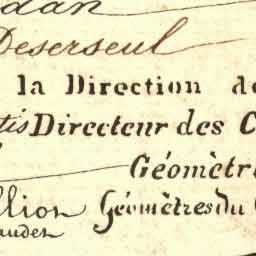 dan
Deserseul
la Direction de
tis Directeur des C
Géomètr
llion Géomètres du
auder